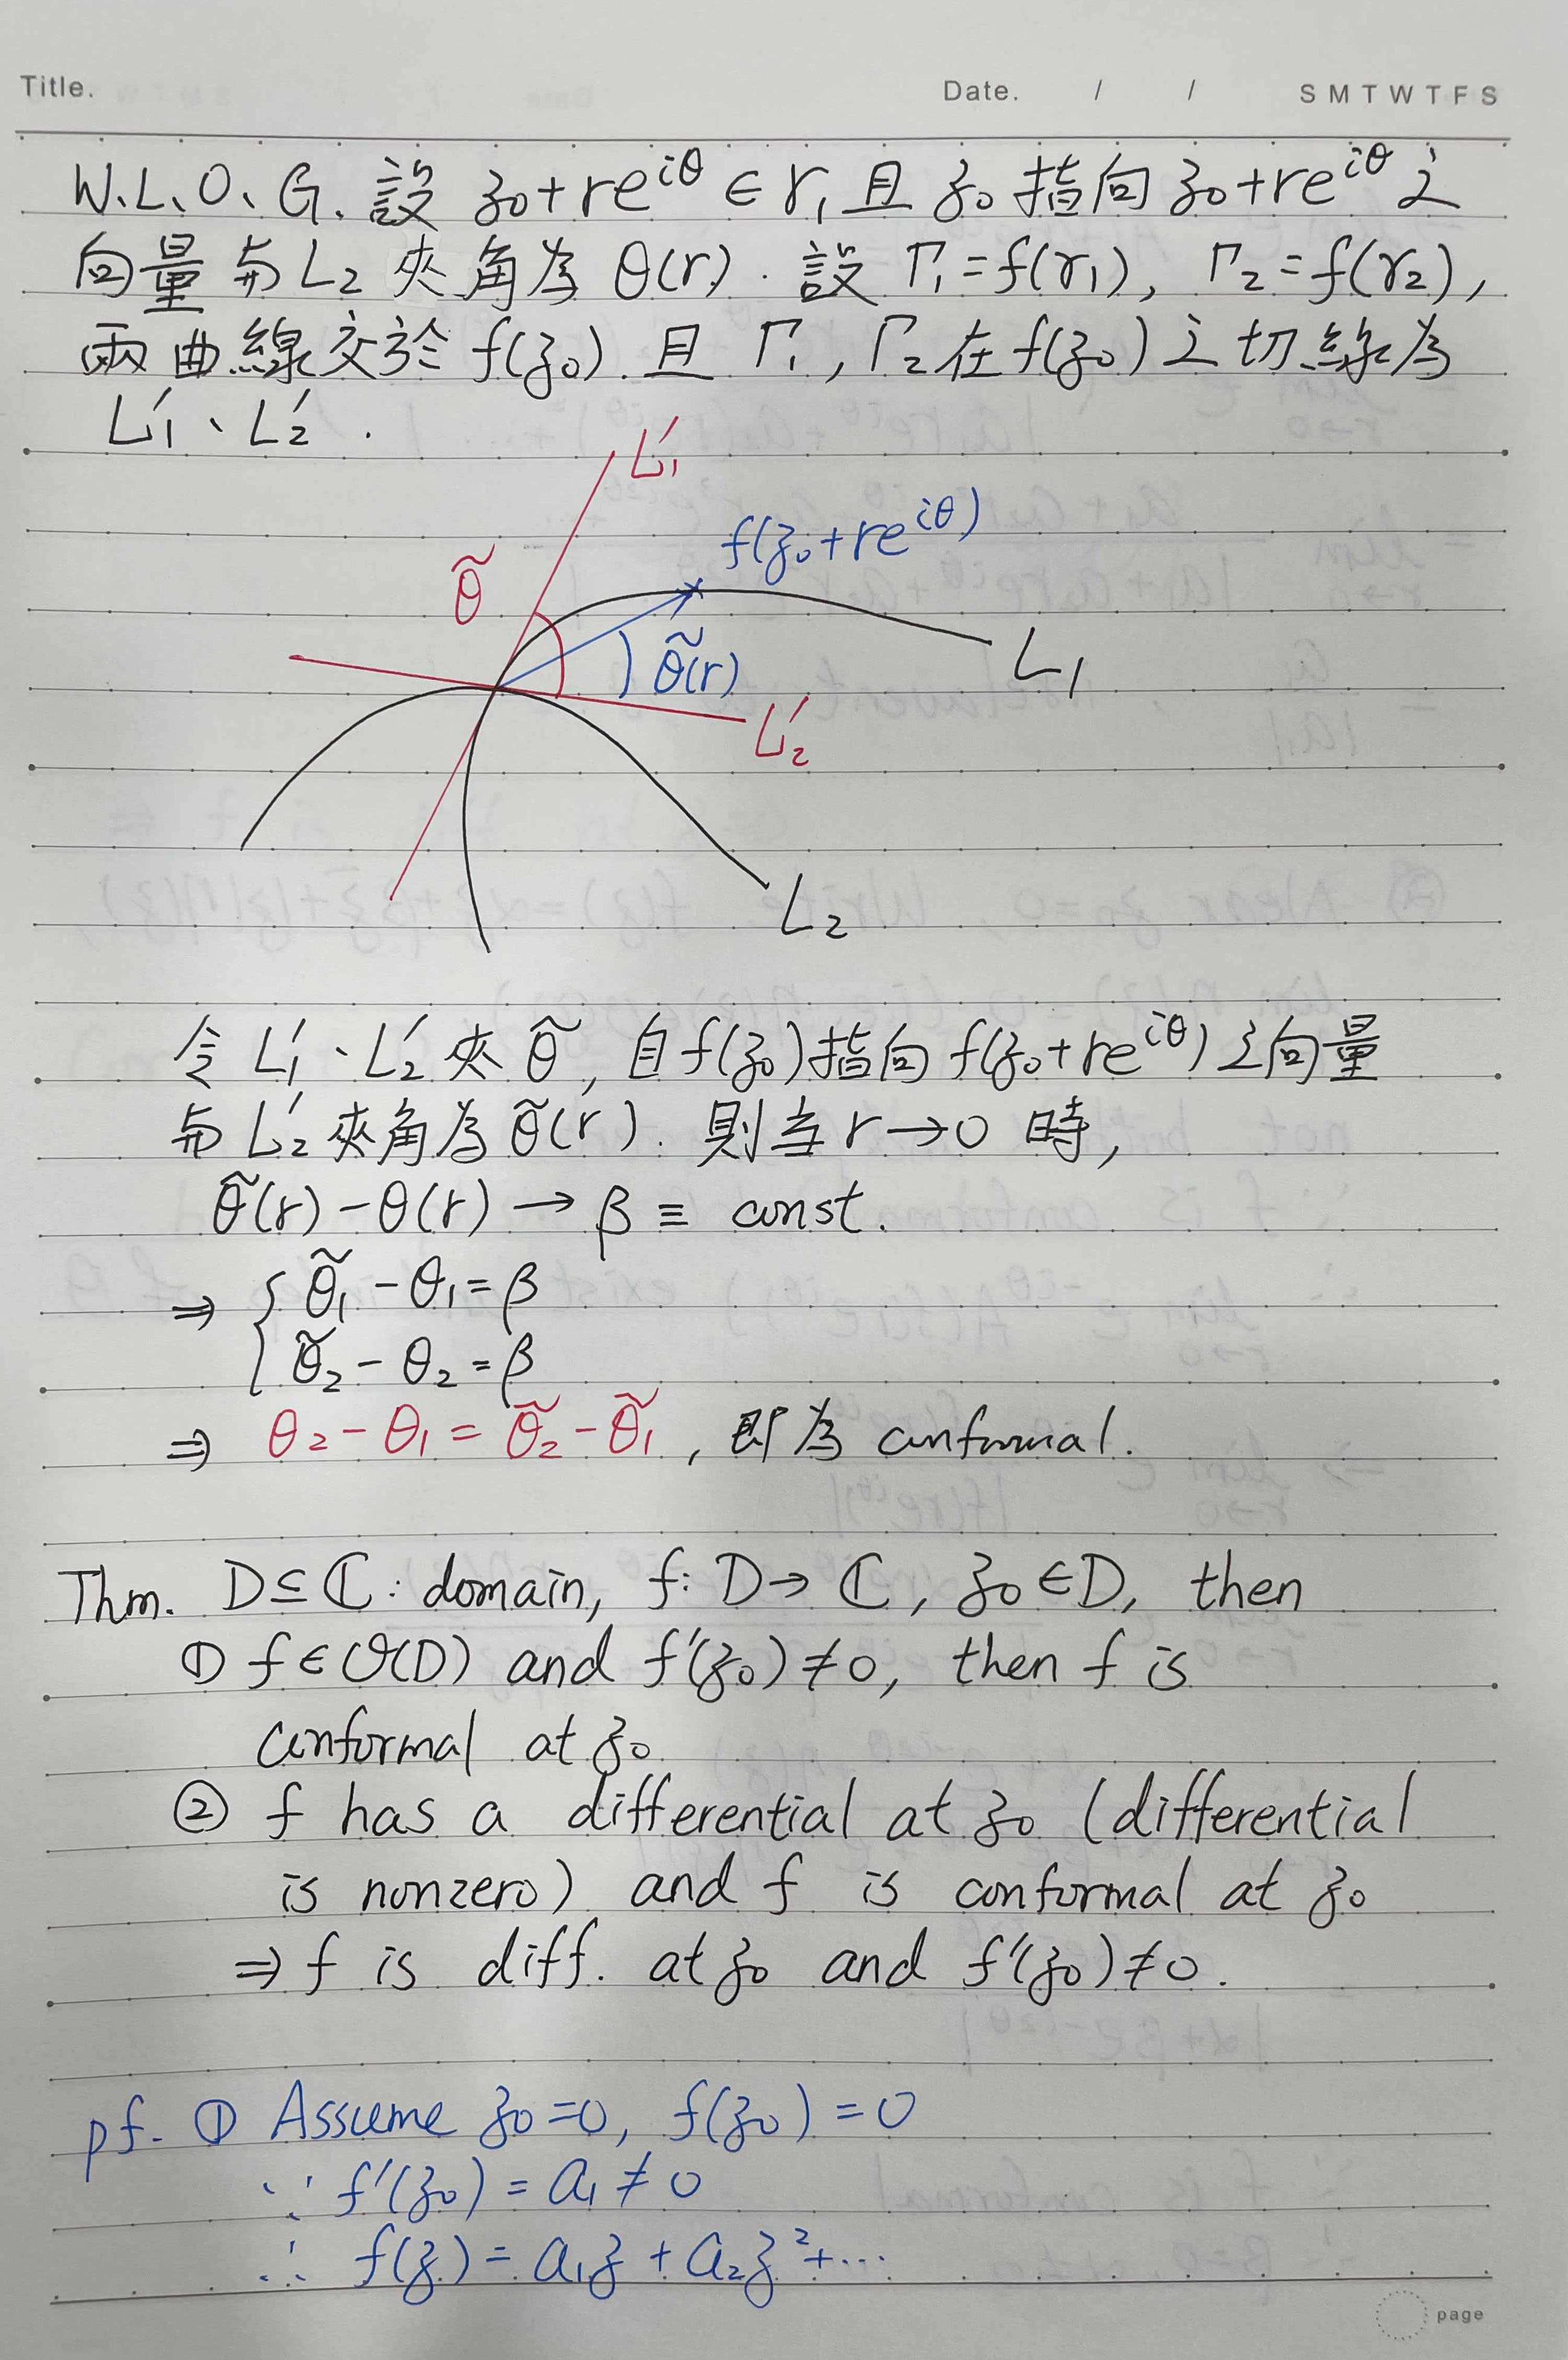 Title.
Date. / / S M T W T F S
W.L.O.G. 設 z₀+re^{iθ} ∈ γ₁ 且 z₀ 指向 z₀+re^{iθ} 之
向量與 L₂ 夾角為 θ(r). 設 Γ₁=f(γ₁), Γ₂=f(γ₂),
兩曲線交於 f(z₀). 且 Γ₁, Γ₂ 在 f(z₀) 之切線為
L₁′、L₂′.
L₁′
f(z₀+re^{iθ})
θ̃
θ̃(r)
L₁
L₂′
L₂
令 L₁′、L₂′ 夾 θ̃, 自 f(z₀) 指向 f(z₀+re^{iθ}) 之向量
與 L₂′ 夾角為 θ̃(r). 則當 r→0 時,
θ̃(r) - θ(r) → β ≡ const.
⇒ { θ̃₁ - θ₁ = β
θ̃₂ - θ₂ = β
⇒ θ₂ - θ₁ = θ̃₂ - θ̃₁, 即為 conformal.
Thm. D⊆ℂ: domain, f: D→ℂ, z₀∈D, then
① f∈𝒪(D) and f′(z₀)≠0, then f is
conformal at z₀.
② f has a differential at z₀ (differential
is nonzero) and f is conformal at z₀
⇒ f is diff. at z₀ and f′(z₀)≠0.
pf. ① Assume z₀=0, f(z₀)=0
∵ f′(z₀) = a₁ ≠ 0
∴ f(z) = a₁z + a₂z² + ⋯
page